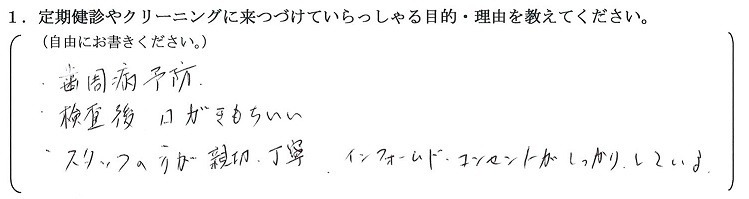 1．定期健診やクリーニングに来つづけていらっしゃる目的・理由を教えてください。
（自由にお書きください。）
・歯周病予防.
・検査後 口がきもちいい
・スタッフの方が親切.丁寧 . インフォームド・コンセントがしっかりしている.